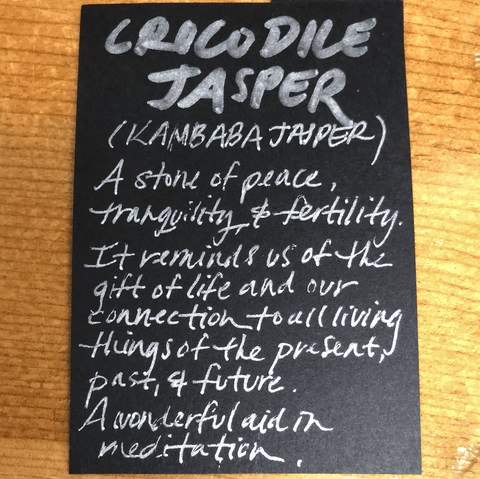 CROCODILE
JASPER
(KAMBABA JASPER)
A stone of peace,
tranquility, & fertility.
It reminds us of the
gift of life and our
connection to all living
things of the present,
past, & future.
A wonderful aid in
meditation.